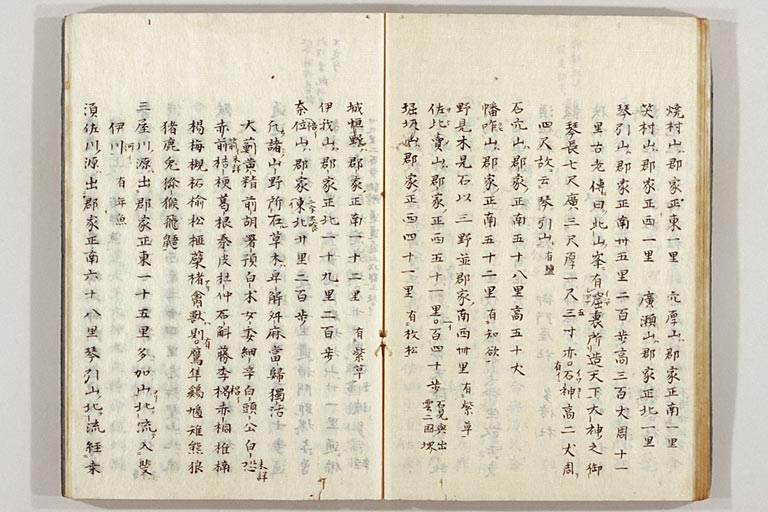 燒村山郡家正東一里 穴厚山郡家正南一里
笑村山郡家正西一里 廣瀬山郡家正北一里
琴引山郡家正南卅五里二百歩高三百丈周十一
里古老傳曰此山峯有窟裏所造天下大神之御
琴長七尺廣三尺厚一尺三寸亦石神高二丈周
四尺故云琴引山有塩
石穴山郡家正南五十八里高五十丈
幡咋山郡家正南五十二里有知欲
野見木見石以三野並郡家南西卌里有紫草
佐比賣山郡家正西五十一里百四十歩石見與出雲二国堺
堀坂山郡家正西四十一里有枚松
城垣野郡家正南一十二里有紫草
伊我山郡家正北一十九里二百歩
奈位山郡家東北廾里二百歩
凡諸山野所在草木卑解升麻當歸獨活
大薊黄精前胡署預白朮女委細辛白頭公白芨
赤前桔梗葛根秦皮杜仲石斛藤李椙赤桐椎楠
楊梅槻柘榆松榧蘗楮禽獣則有鷹隼鷄鳩雉熊狼
猪鹿兎狐獼猴飛鼯
三屋川源出郡家正東一十五里多加山北流入斐
伊川有年魚
須佐川源出郡家正南六十八里琴引山北流経来